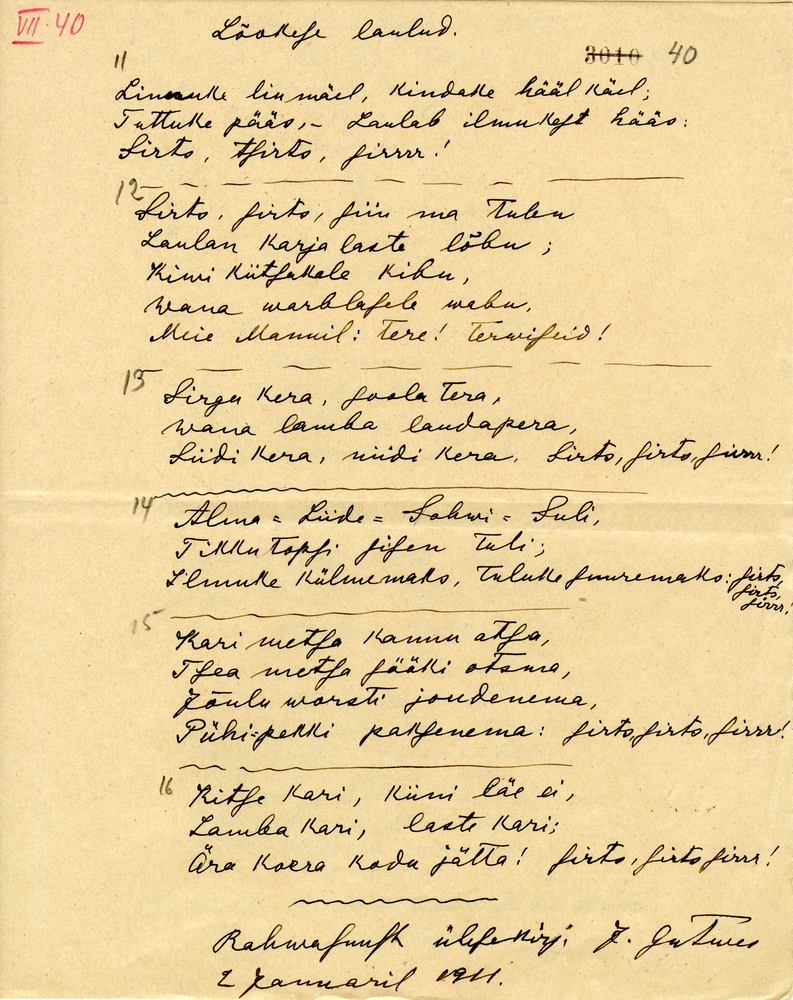 VII. 40
Lõokese laulud.
3010 40
11
Linnuke liu mäel, Kindake hääl Käel;
Tuttuke pääs, - Laulab ilmukest hääs:
Sirts, tsirts, sirrrr!
12
Sirts, sirts, siin ma Tulen
Laulan Karjalaste lõbu;
Kiwi Kütsakale Kibu,
wana warblasele wabu.
Meie Mannil: Tere! Terwiseid!
13
Sirgu Kera, soola Tera,
wana lamba laudapera,
Siidi Kera, niidi Kera. Sirts, sirts, sirrrr!
14
Alma = Liide = Sohwi = Suli,
Tikkutopsi sisen Tuli;
Ilmuke Külmemaks, Tuluke suuremaks: sirts,
sirts,
sirrr!
15
Kari metsa Kannu otsa,
Isea metsa sääki otsma,
Jõulu worsti joudenema,
Pühi-pekki paksenema: sirts, sirts, sirrr!
16
Kitse Kari, Küüni läe ei,
Lamba Kari, laste Kari:
Ära Koera Kodu jätta! sirts, sirts sirrr!
Rahwasuust üleskirj. J. Gutwes
2 Jannuaril 1911.